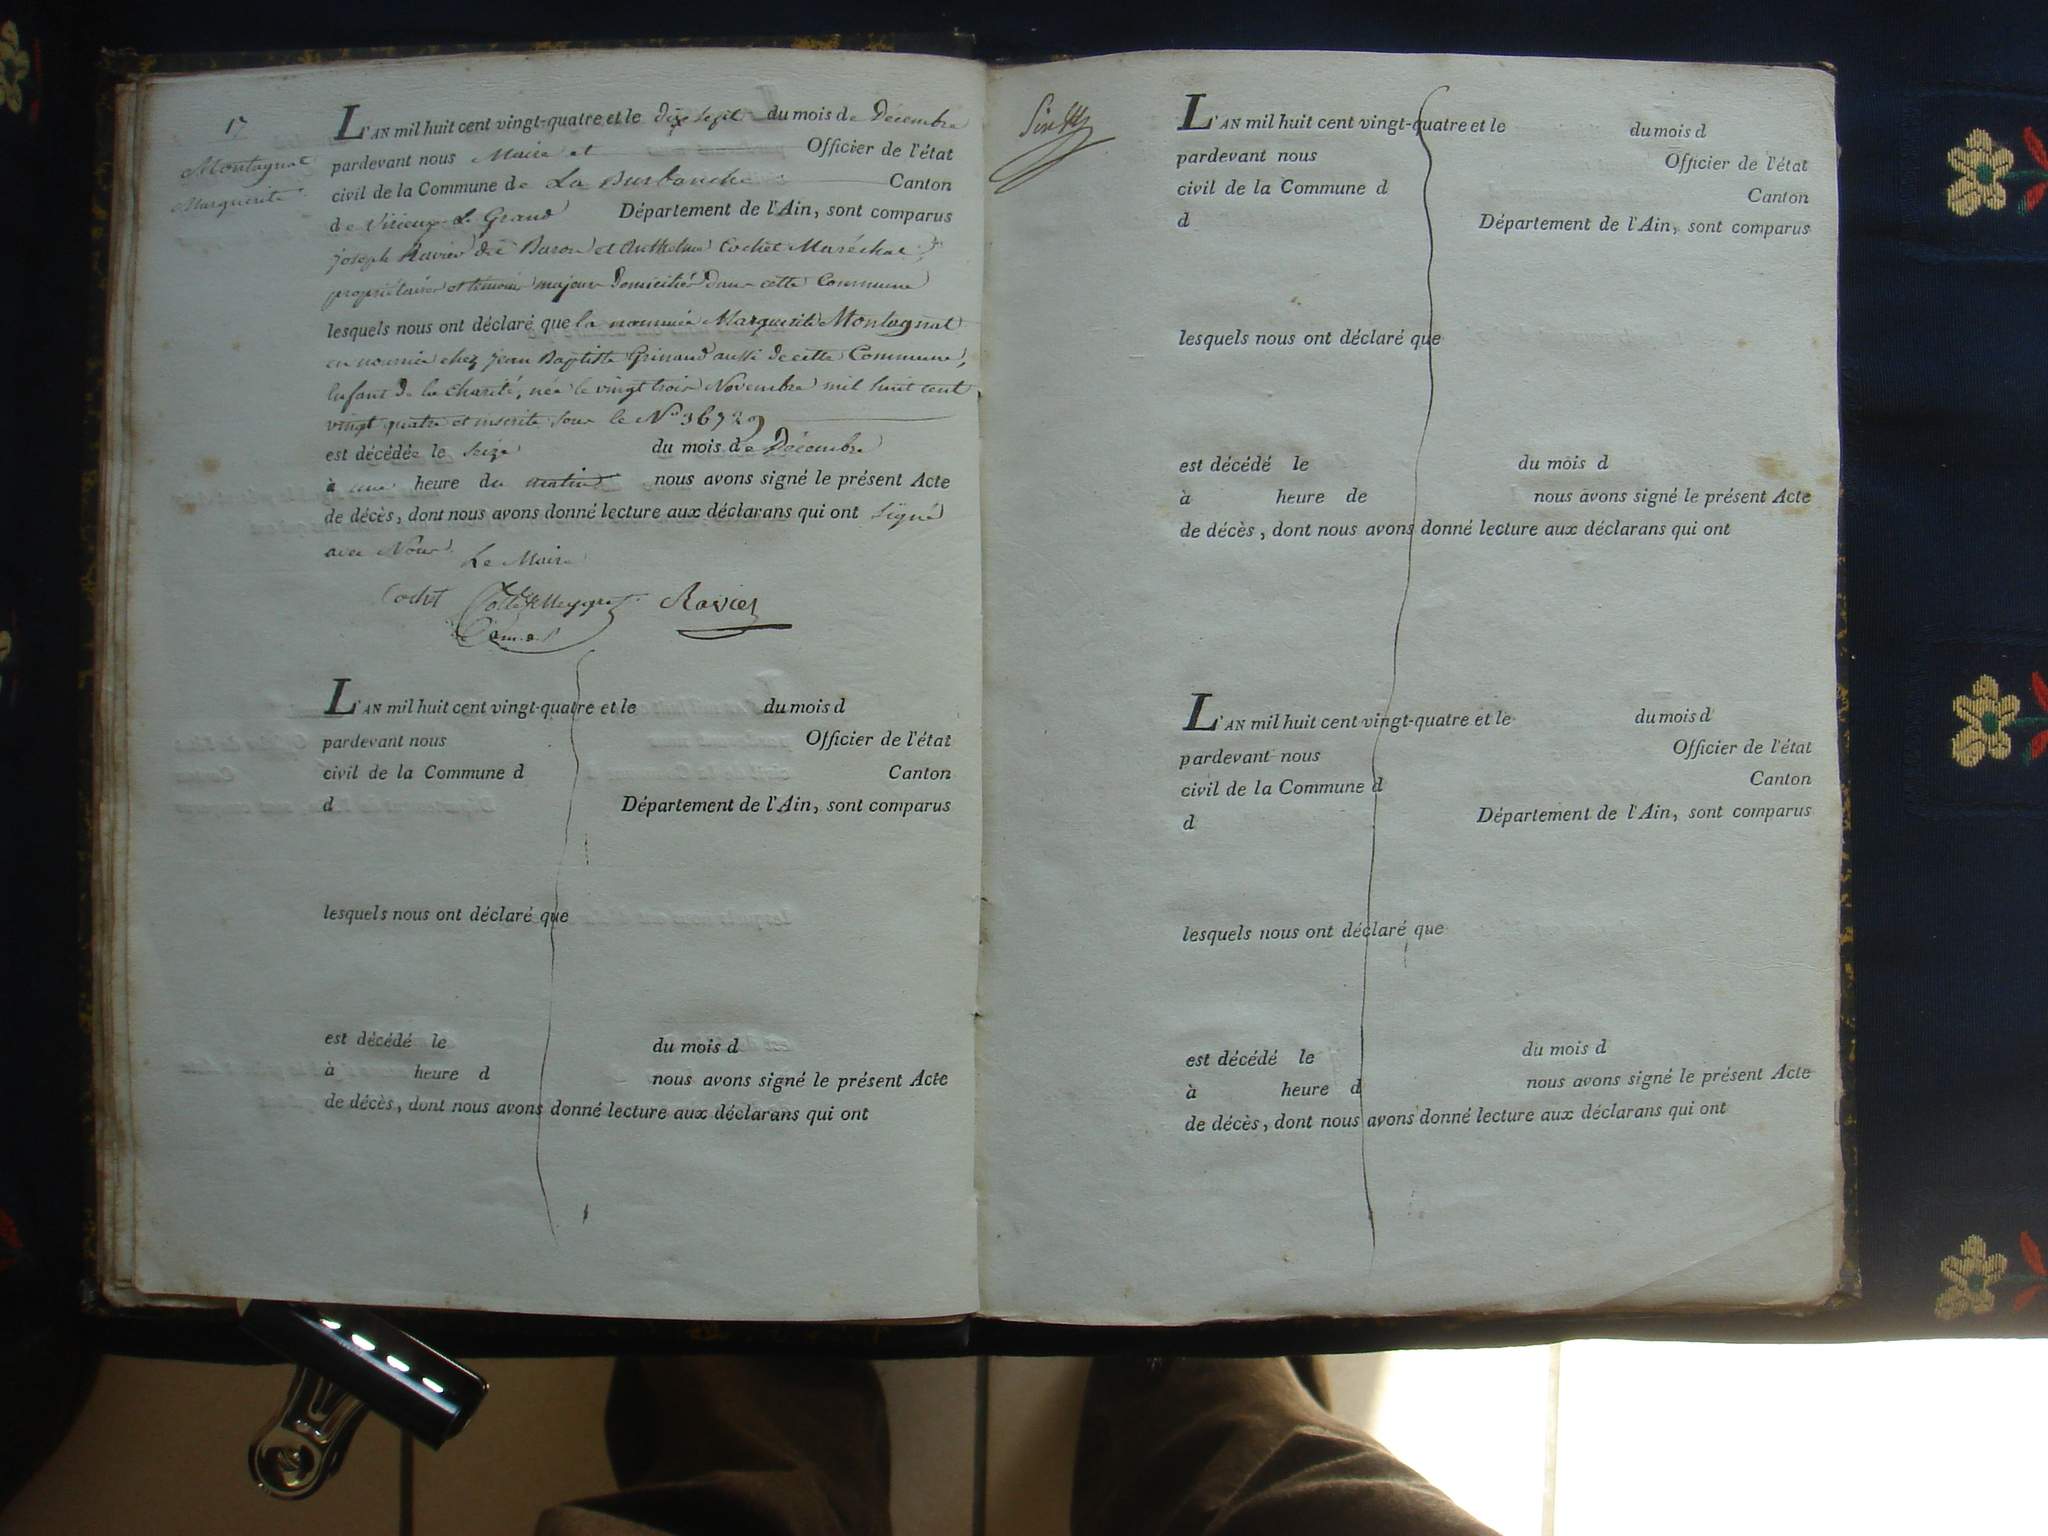 17
Montagnat
Marguerite
L'AN mil huit cent vingt-quatre et le dix sept du mois de Décembre
pardevant nous Maire et Officier de l'état
civil de la Commune de La Burbanche Canton
de Virieux Le Grand Département de l'Ain, sont comparus
joseph Ravier dit Baron et Anthelme Cochet Maréchal
propriétaires et temoins majeurs Domiciliés dans cette Commune
lesquels nous ont déclaré que la nommée Marguerite Montagnat
en nourrice chez jean Baptiste Grinand aussi de cette Commune,
Enfant de la Charité, née le vingt trois Novembre mil huit cent
vingt quatre et inscrite sous le N°
est décédée le seize du mois de Décembre
à une heure du matin nous avons signé le présent Acte
de décès, dont nous avons donné lecture aux déclarans qui ont signé
avec Nous.
Le Maire
Cochet Ravier
L'AN mil huit cent vingt-quatre et le du mois d
pardevant nous Officier de l'état
civil de la Commune d Canton
d Département de l'Ain, sont comparus
lesquels nous ont déclaré que
est décédé le du mois d
à heure d nous avons signé le présent Acte
de décès, dont nous avons donné lecture aux déclarans qui ont
L'AN mil huit cent vingt-quatre et le du mois d
pardevant nous Officier de l'état
civil de la Commune d Canton
d Département de l'Ain, sont comparus
lesquels nous ont déclaré que
est décédé le du mois d
à heure de nous avons signé le présent Acte
de décès, dont nous avons donné lecture aux déclarans qui ont
L'AN mil huit cent vingt-quatre et le du mois d
pardevant nous Officier de l'état
civil de la Commune d Canton
d Département de l'Ain, sont comparus
lesquels nous ont déclaré que
est décédé le du mois d
à heure d nous avons signé le présent Acte
de décès, dont nous avons donné lecture aux déclarans qui ont